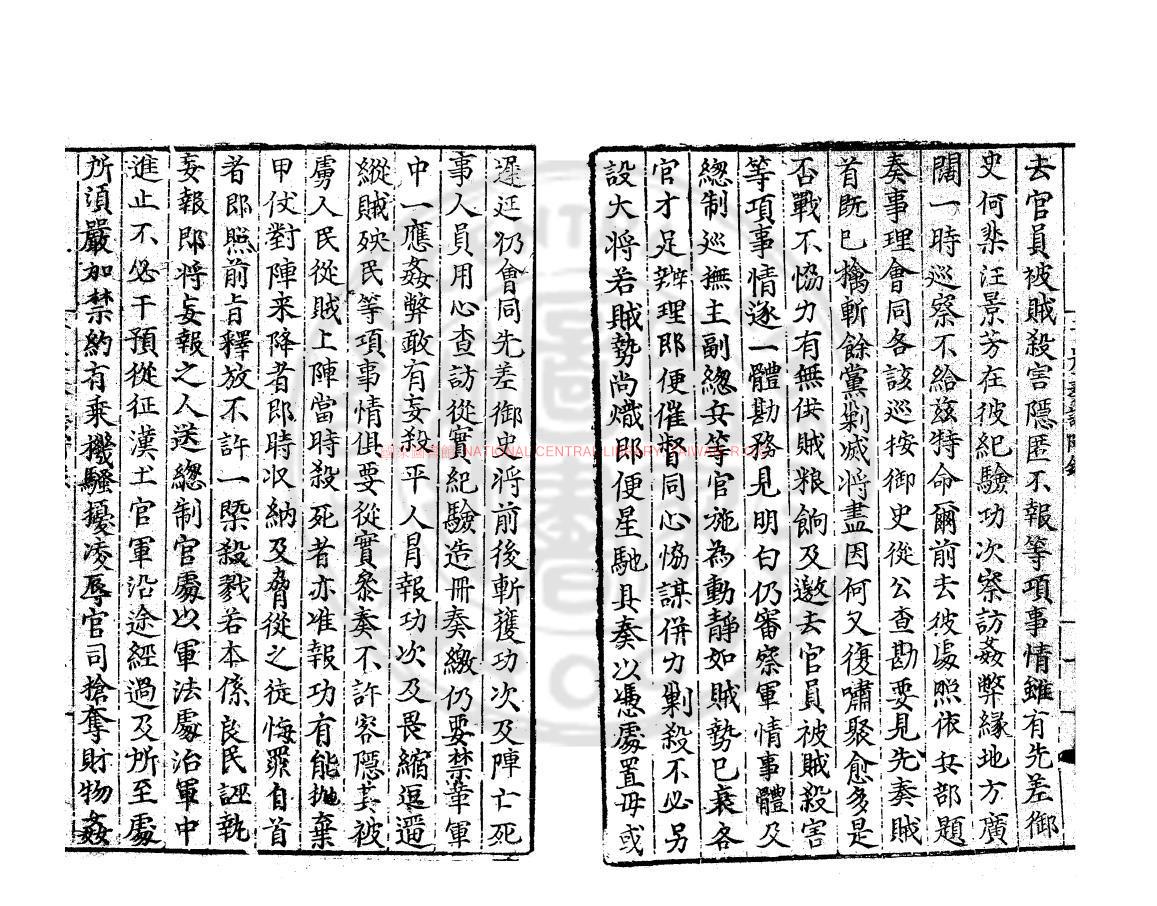 去官員被賊殺害隱匿不報等項事情雖有先差御
史何棐汪景芳在彼紀驗功次察訪姦弊緣地方廣
闊一時巡察不給茲特命爾前去彼處照依兵部題
奏事理會同各該巡按御史從公查勘要見先奏賊
首既已擒斬餘黨剿滅將盡因何又復嘯聚愈多是
否戰不恊力有無供賊粮餉及邀去官員被賊殺害
等項事情逐一體勘務見明白仍審察軍情事體及
總制巡撫主副總兵等官施為動靜如賊勢已衰各
官才足辦理即便催督同心恊謀併力剿殺不必另
設大將若賊勢尚熾即便星馳具奏以憑處置毋或
遲延仍會同先差御史將前後斬獲功次及陣亡死
事人員用心查訪從實紀驗造冊奏繳仍要禁革軍
中一應姦弊敢有妄殺平人冒報功次及畏縮逗遛
縱賊殃民等項事情俱要從實叅奏不許容隱其被
虜人民從賊上陣當時殺死者亦准報功有能拋棄
甲仗對陣来降者即時收納及脅從之徒悔罪自首
者即照前旨釋放不許一槩殺戮若本係良民誣執
妄報即將妄報之人送總制官處以軍法處治軍中
進止不必干預從征漢土官軍沿途經過及所至處
所須嚴加禁約有乘機騷擾凌辱官司搶奪財物姦
國家圖書館 NATIONAL CENTRAL LIBRARY, TAIWAN, R.O.C